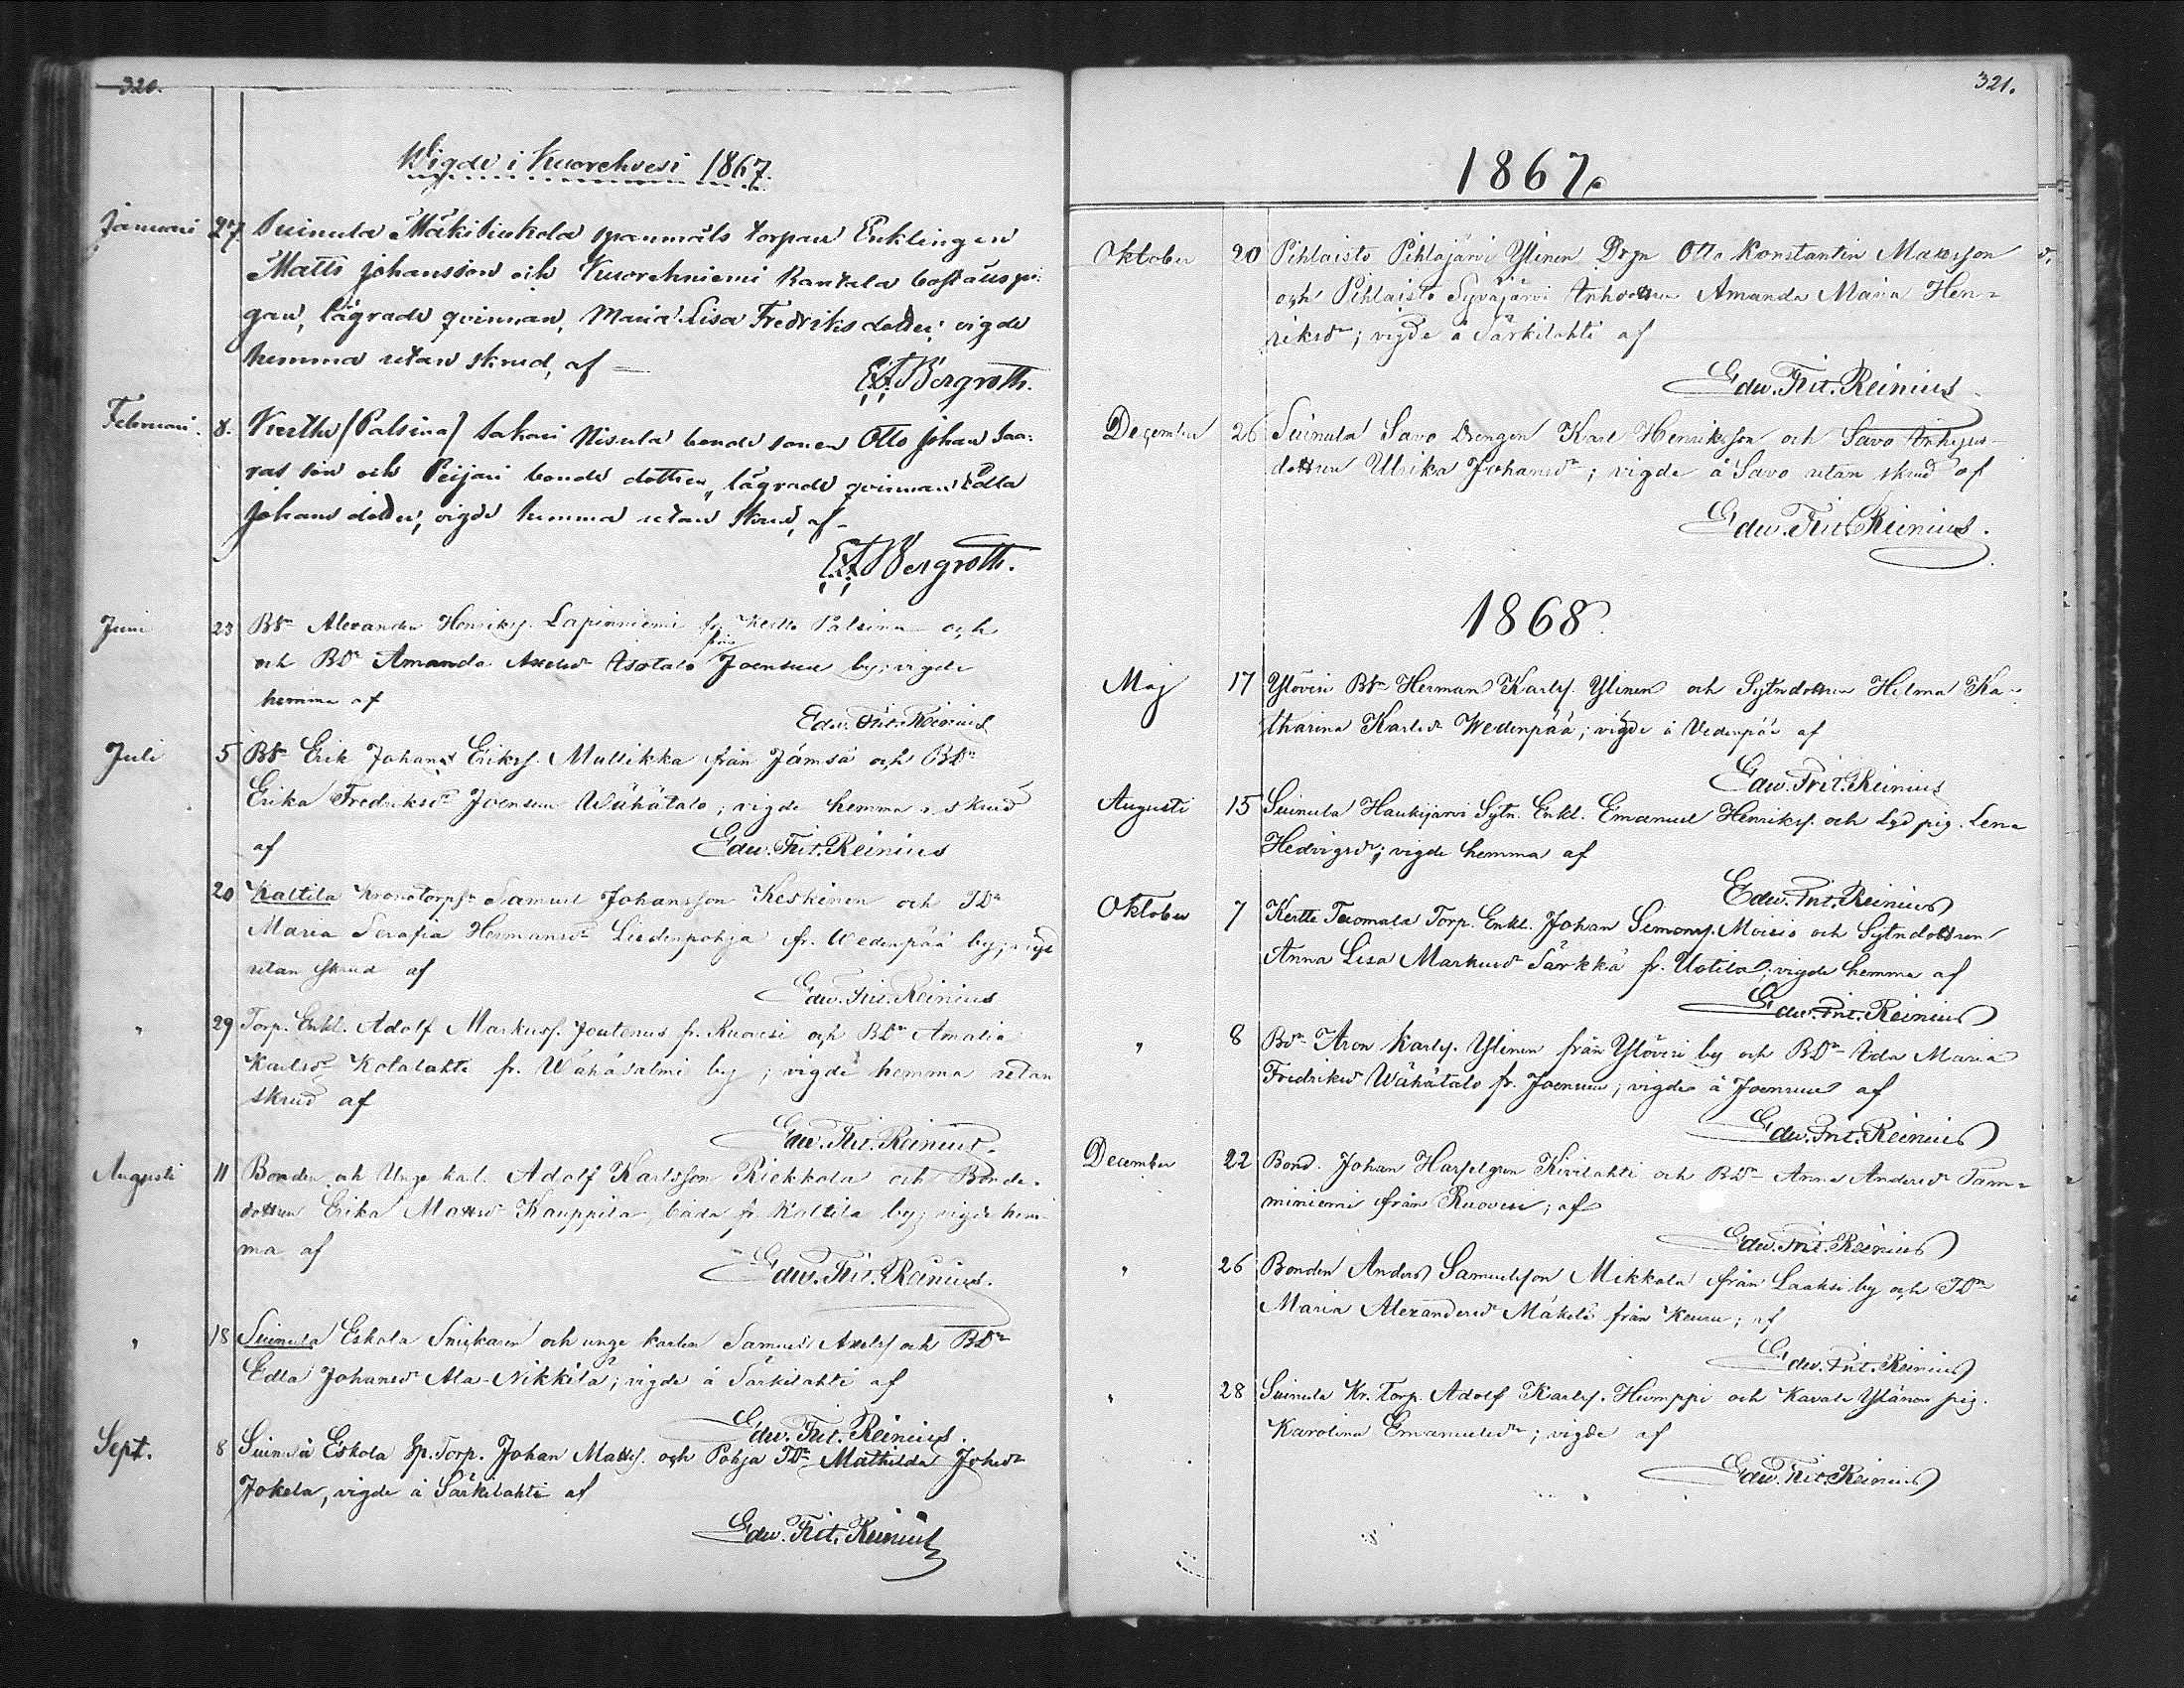 320.
Wigde i Kuorehvesi 1867.
Januari 27. Suinula Mäkitiukola spanmåls torparn Enklingen
Matts Johansson och Kuorehniemi Rantala backstuspi-
gan, lägrade qvinnan, Maria Lisa Fredriksdotter; vigde
hemma utan skrud, af —
E A Bergroth.
Februari. 8. Kertte (Palsina) Sakari Nisula bonde sonen Otto Johan Saa-
ras son och Peijari bonde dottren, lägrade qvinnan Edla
Johans dotter, vigde hemma utan skrud, af -
E A Bergroth.
Juni 23 BSn Alexander Henrikss. Lapinniemi fr. Kertte Palsina och
och BDn Amanda Axelsdr Isotalo från Joensuu by; vigde
hemma af
Edw. Frit. Reinius
Juli 5 BSn Erik Johan Erikss. Mullikka från Jämsä och BDn
Erika Fredriksdr Joensuu Wähätalo; vigde hemma u. skrud
af Edw. Frit. Reinius
20 Kaltila Kronotorpsn Samuel Johansson Keskinen och TDn
Maria Serafia Hermansdr Liedenpohja fr. Wedenpää by; vigde
utan skrud af
Edw. Frit. Reinius
" 29 Torp. Enkl. Adolf Markuss. Joutenus fr. Ruovesi och BDn Amalia
Karlsdr Kotalahti fr. Wähäsalmi by; vigde hemma utan
skrud af
Edw. Frit. Reinius.
Augusti 11 Bonden och Unge karl. Adolf Karlsson Riekkola och Bonde-
dottren Erika Mattsdr Kauppila, båda fr. Kaltila by; vigde hem-
ma af
Edw. Frit. Reinius.
" 18 Suinula Eskola Snickaren och unge karlen Samuel Axelss och BDr
Edla Johansdr Ala-Nikkilä; vigde å Särkilahti af
Edw. Frit. Reinius.
Sept. 8 Suinula Eskola Sp. Torp. Johan Matts. och Pohja TDr Mathilda Johsdr
Jokela, vigde å Särkilahti af
Edw. Frit. Reinius
321.
1867.
Oktober 20 Pihlaisto Pihlajärvi Ylinen Drgn Otto Konstantin Mattsson
och Pihlaisto Syväjärvi Inhdottren Amanda Maria Hen-
riksdr; vigde å Särkilahti af
Edw. Frit. Reinius
December 26 Suinula Savo Drengen Karl Henriksson och Savo Inhyses-
dottren Ulrika Johansdr; vigde å Savo utan skrud af
Edw. Frit. Reinius.
1868.
Maj 17 Ylöviri BSn Herman Karls. Ylinen och Sytndottren Helma Ka-
tharina Karlsdr Wedenpää; vigde å Vedenpää af
Edw. Frit. Reinius
Augusti 15 Suinula Haukijärvi Sytn. Enkl. Emanuel Henrikss. och Lgd pig. Lena
Hedvigsdr; vigde hemma af
Edw. Frit. Reinius
Oktober 7 Kertte Tuomala Torp. Enkl. Johan Simons. Moisio och Sytndottren
Anna Lisa Markusdr Särkkä fr. Uotila; vigde hemma af
Edw. Frit. Reinius
" 8 BSn Aron Karls. Ylinen från Ylöviri by och BDn Ida Maria
Fredriksdr Wähätalo fr. Joensuu; vigde å Joensuu af
Edw. Frit. Reinius
December 22 Bond. Johan Hasselgren Kivilahti och BDr Anna Andersdr Tam-
miniemi från Ruovesi; af
Edw. Frit. Reinius
" 26 Bonden Anders Samuelsson Mikkola från Laaksi by och TDn
Maria Alexandersdr Mäkelä från Keuru; af
Edw. Frit. Reinius
" 28 Suinula Kr. Torp. Adolf Karls. Humppi och Kavala Ylänen pig.
Karolina Emanuelsdr; vigde af
Edw. Frit. Reinius